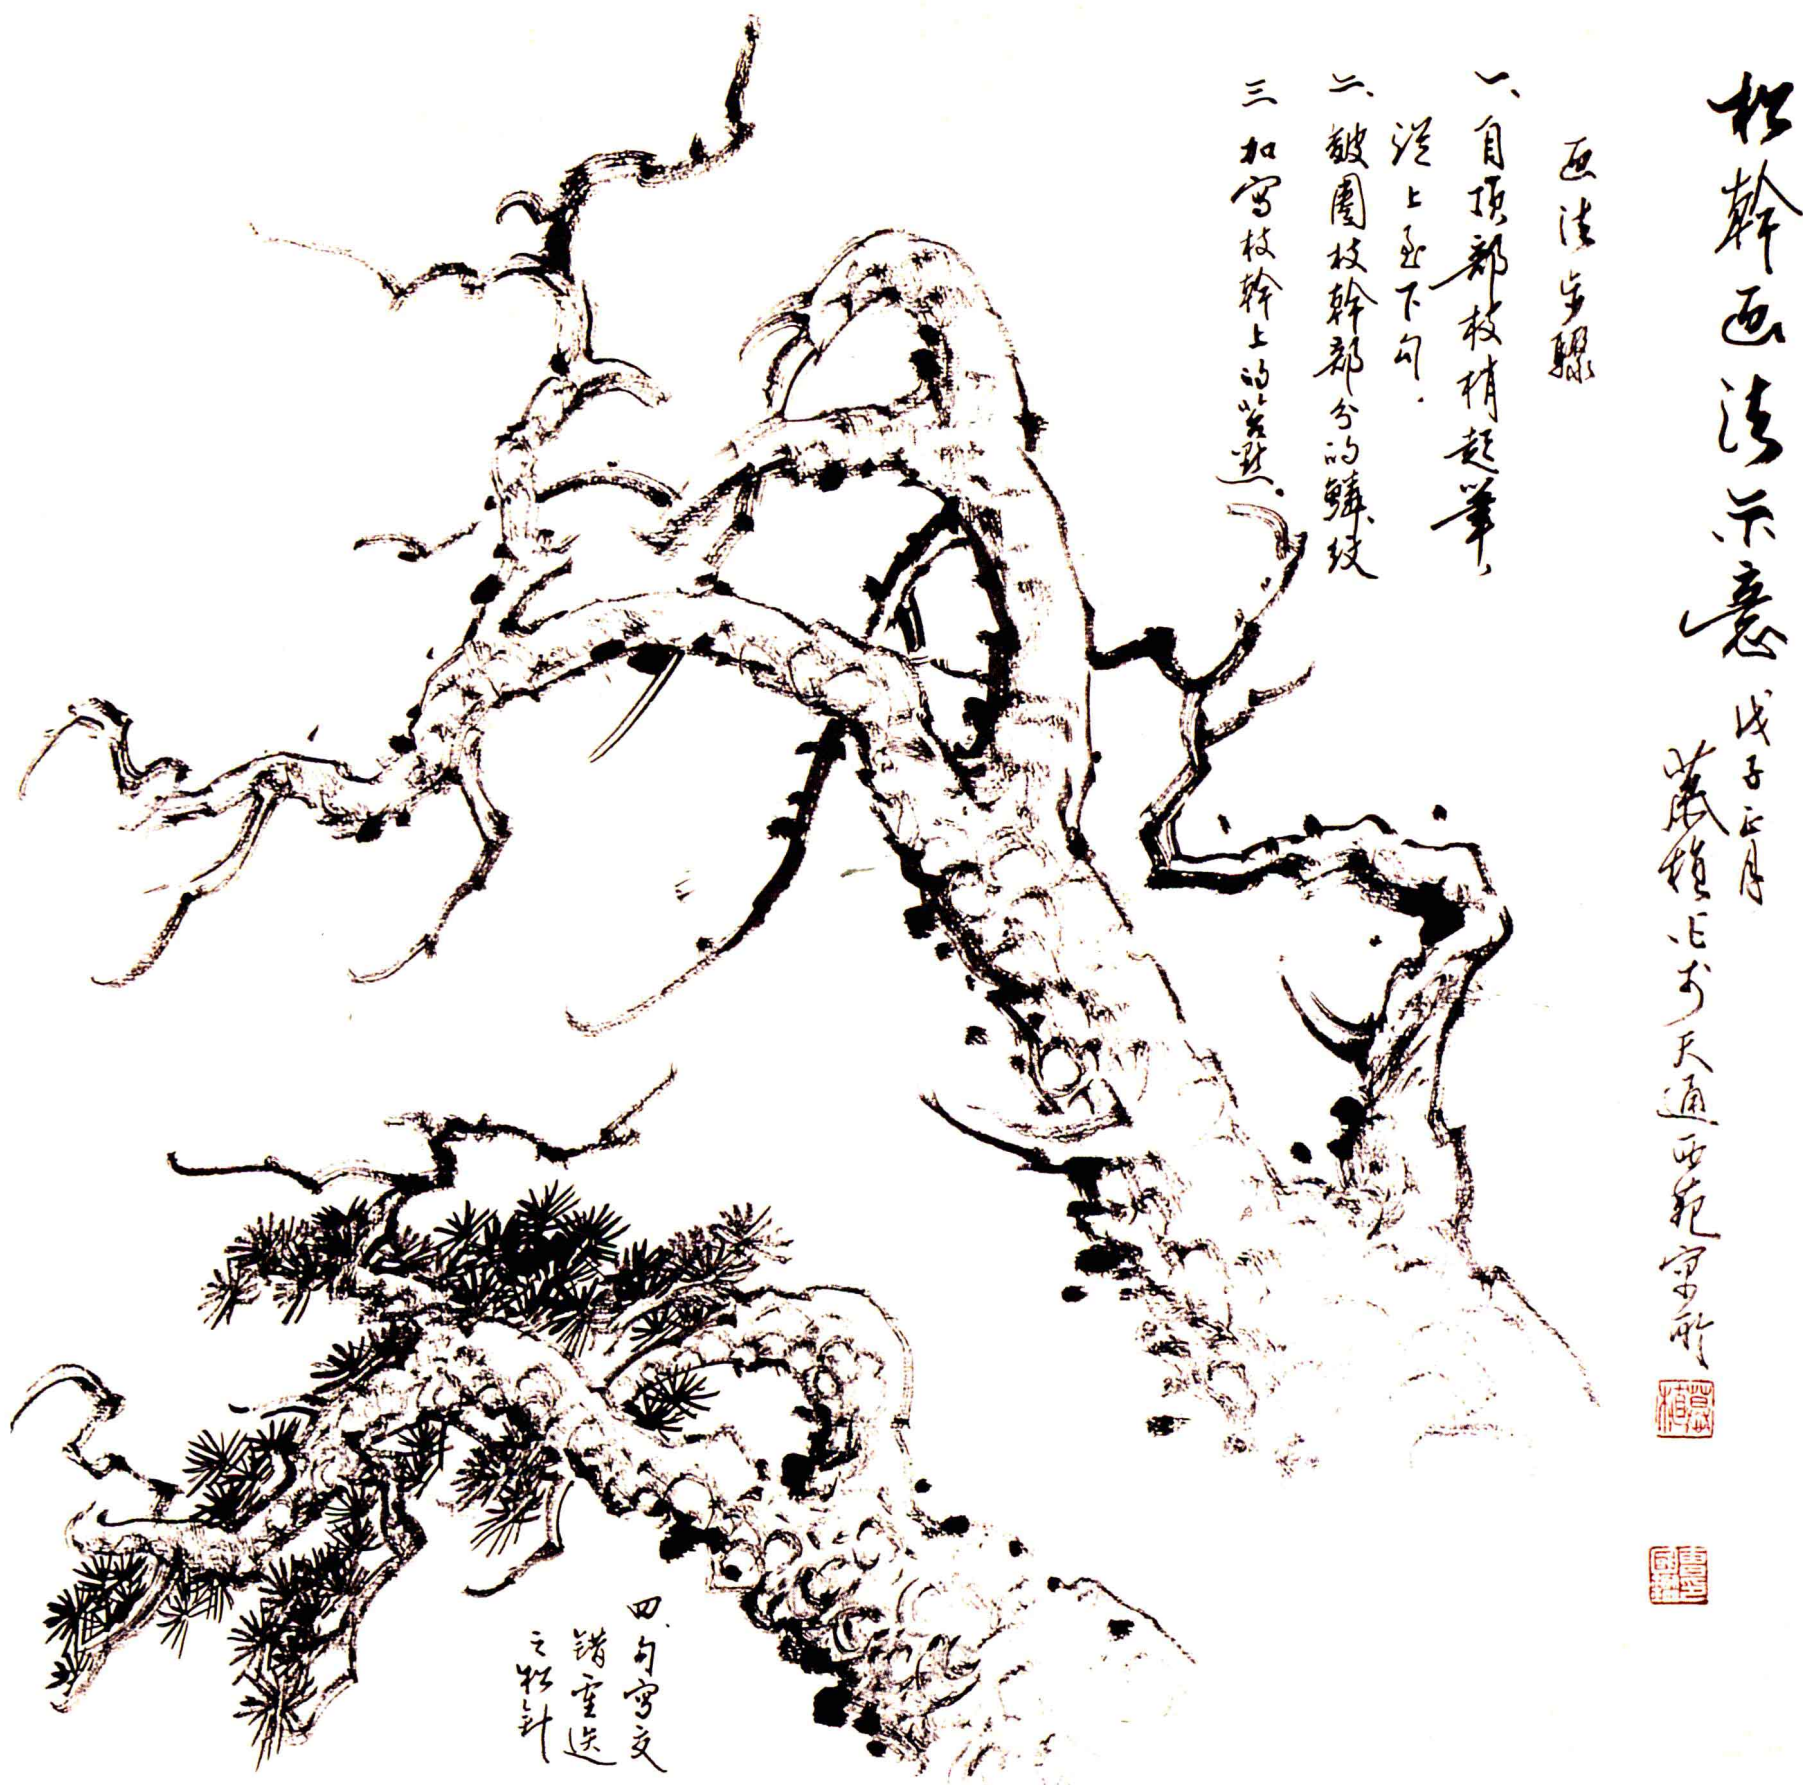 松幹画法示意
戊子正月
蕆植作於天通西苑寓所
画法步驟
一、自頂部枝梢起筆、
從上至下勾.
二、皴圈枝幹部分的鱗皮
三 加寫枝幹上的苔點.
四、勾寫交
錯重迭
之松針